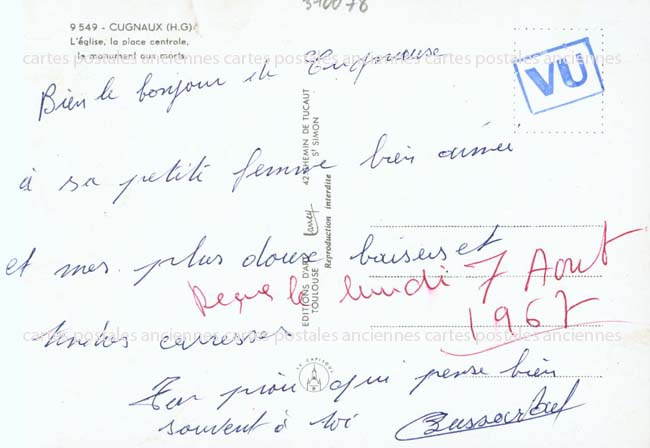 310078
9549 - CUGNAUX (H.G)
L'église, la place centrale,
le monument aux morts.
VU
cartes postales anciennes cartes postales anciennes cartes postales anciennes
Bien le bonjour de
à sa petite femme bien aimée
et mes plus doux baisers et
caresses
cartes postales anciennes cartes postales anciennes cartes postales anciennes
qui pense bien
souvent à toi
Reçue le lundi 7 Aout
1967
EDITIONS D'ART
TOULOUSE
Larrey
42, CHEMIN DE TUCAUT
St SIMON
Reproduction interdite
cartes postales anciennes cartes postales anciennes cartes postales anciennes
LA CAPITOUL